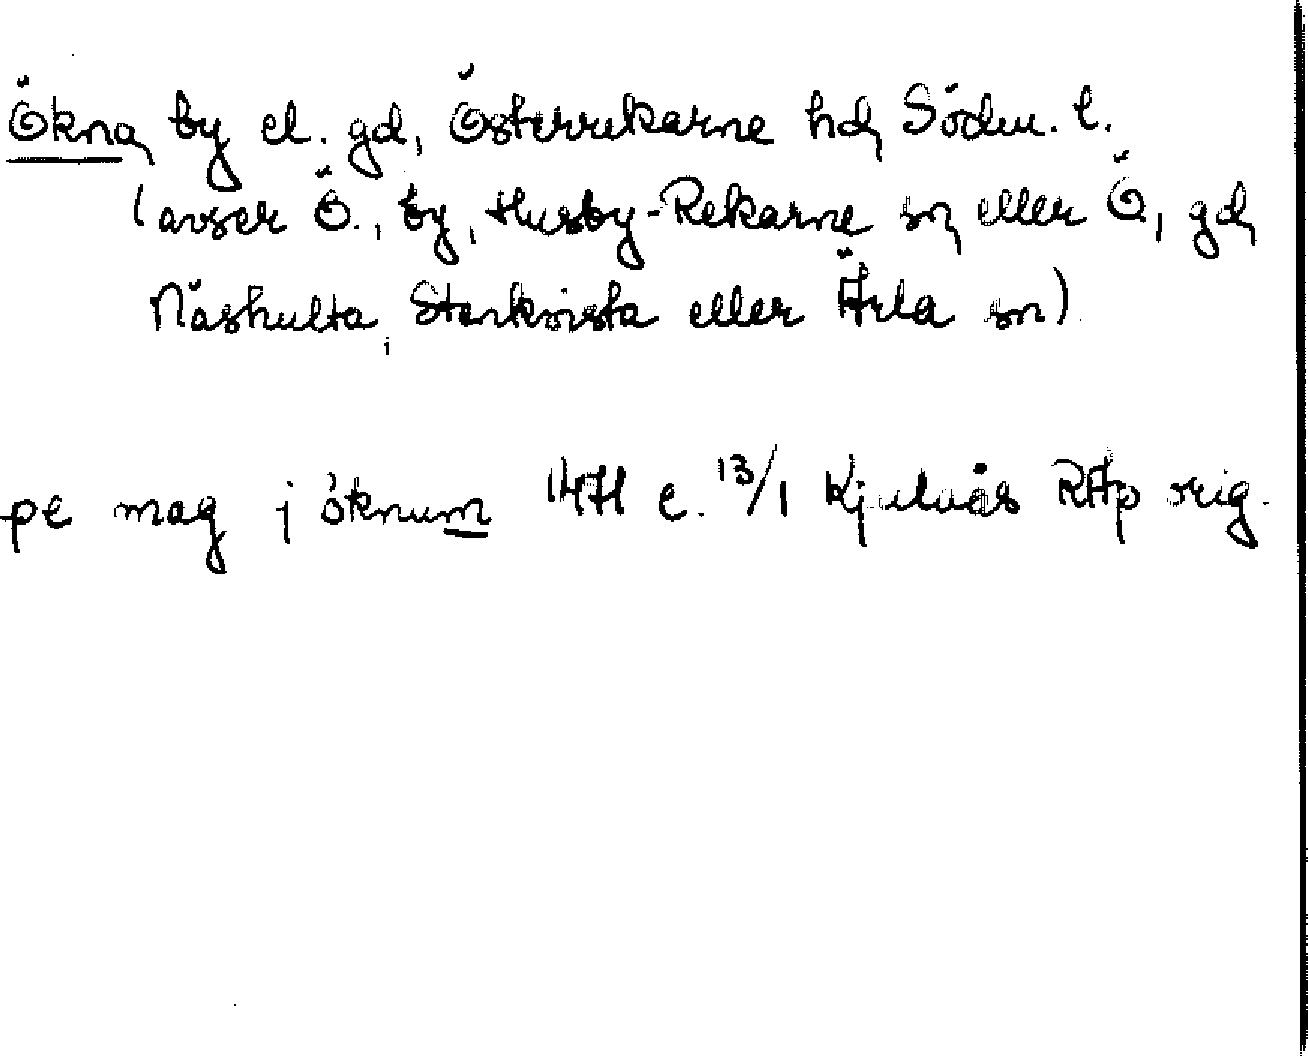 Ökna, by el. gd, Österrekarne hd, Söderm. l.
(avser Ö., by, Husby-Rekarne sn, eller Ö, gd,
Näshulta, Stenkvista eller Ärla sn)
pe mag j öknum 1471 e. 13/1 Kjulaås RAp orig.